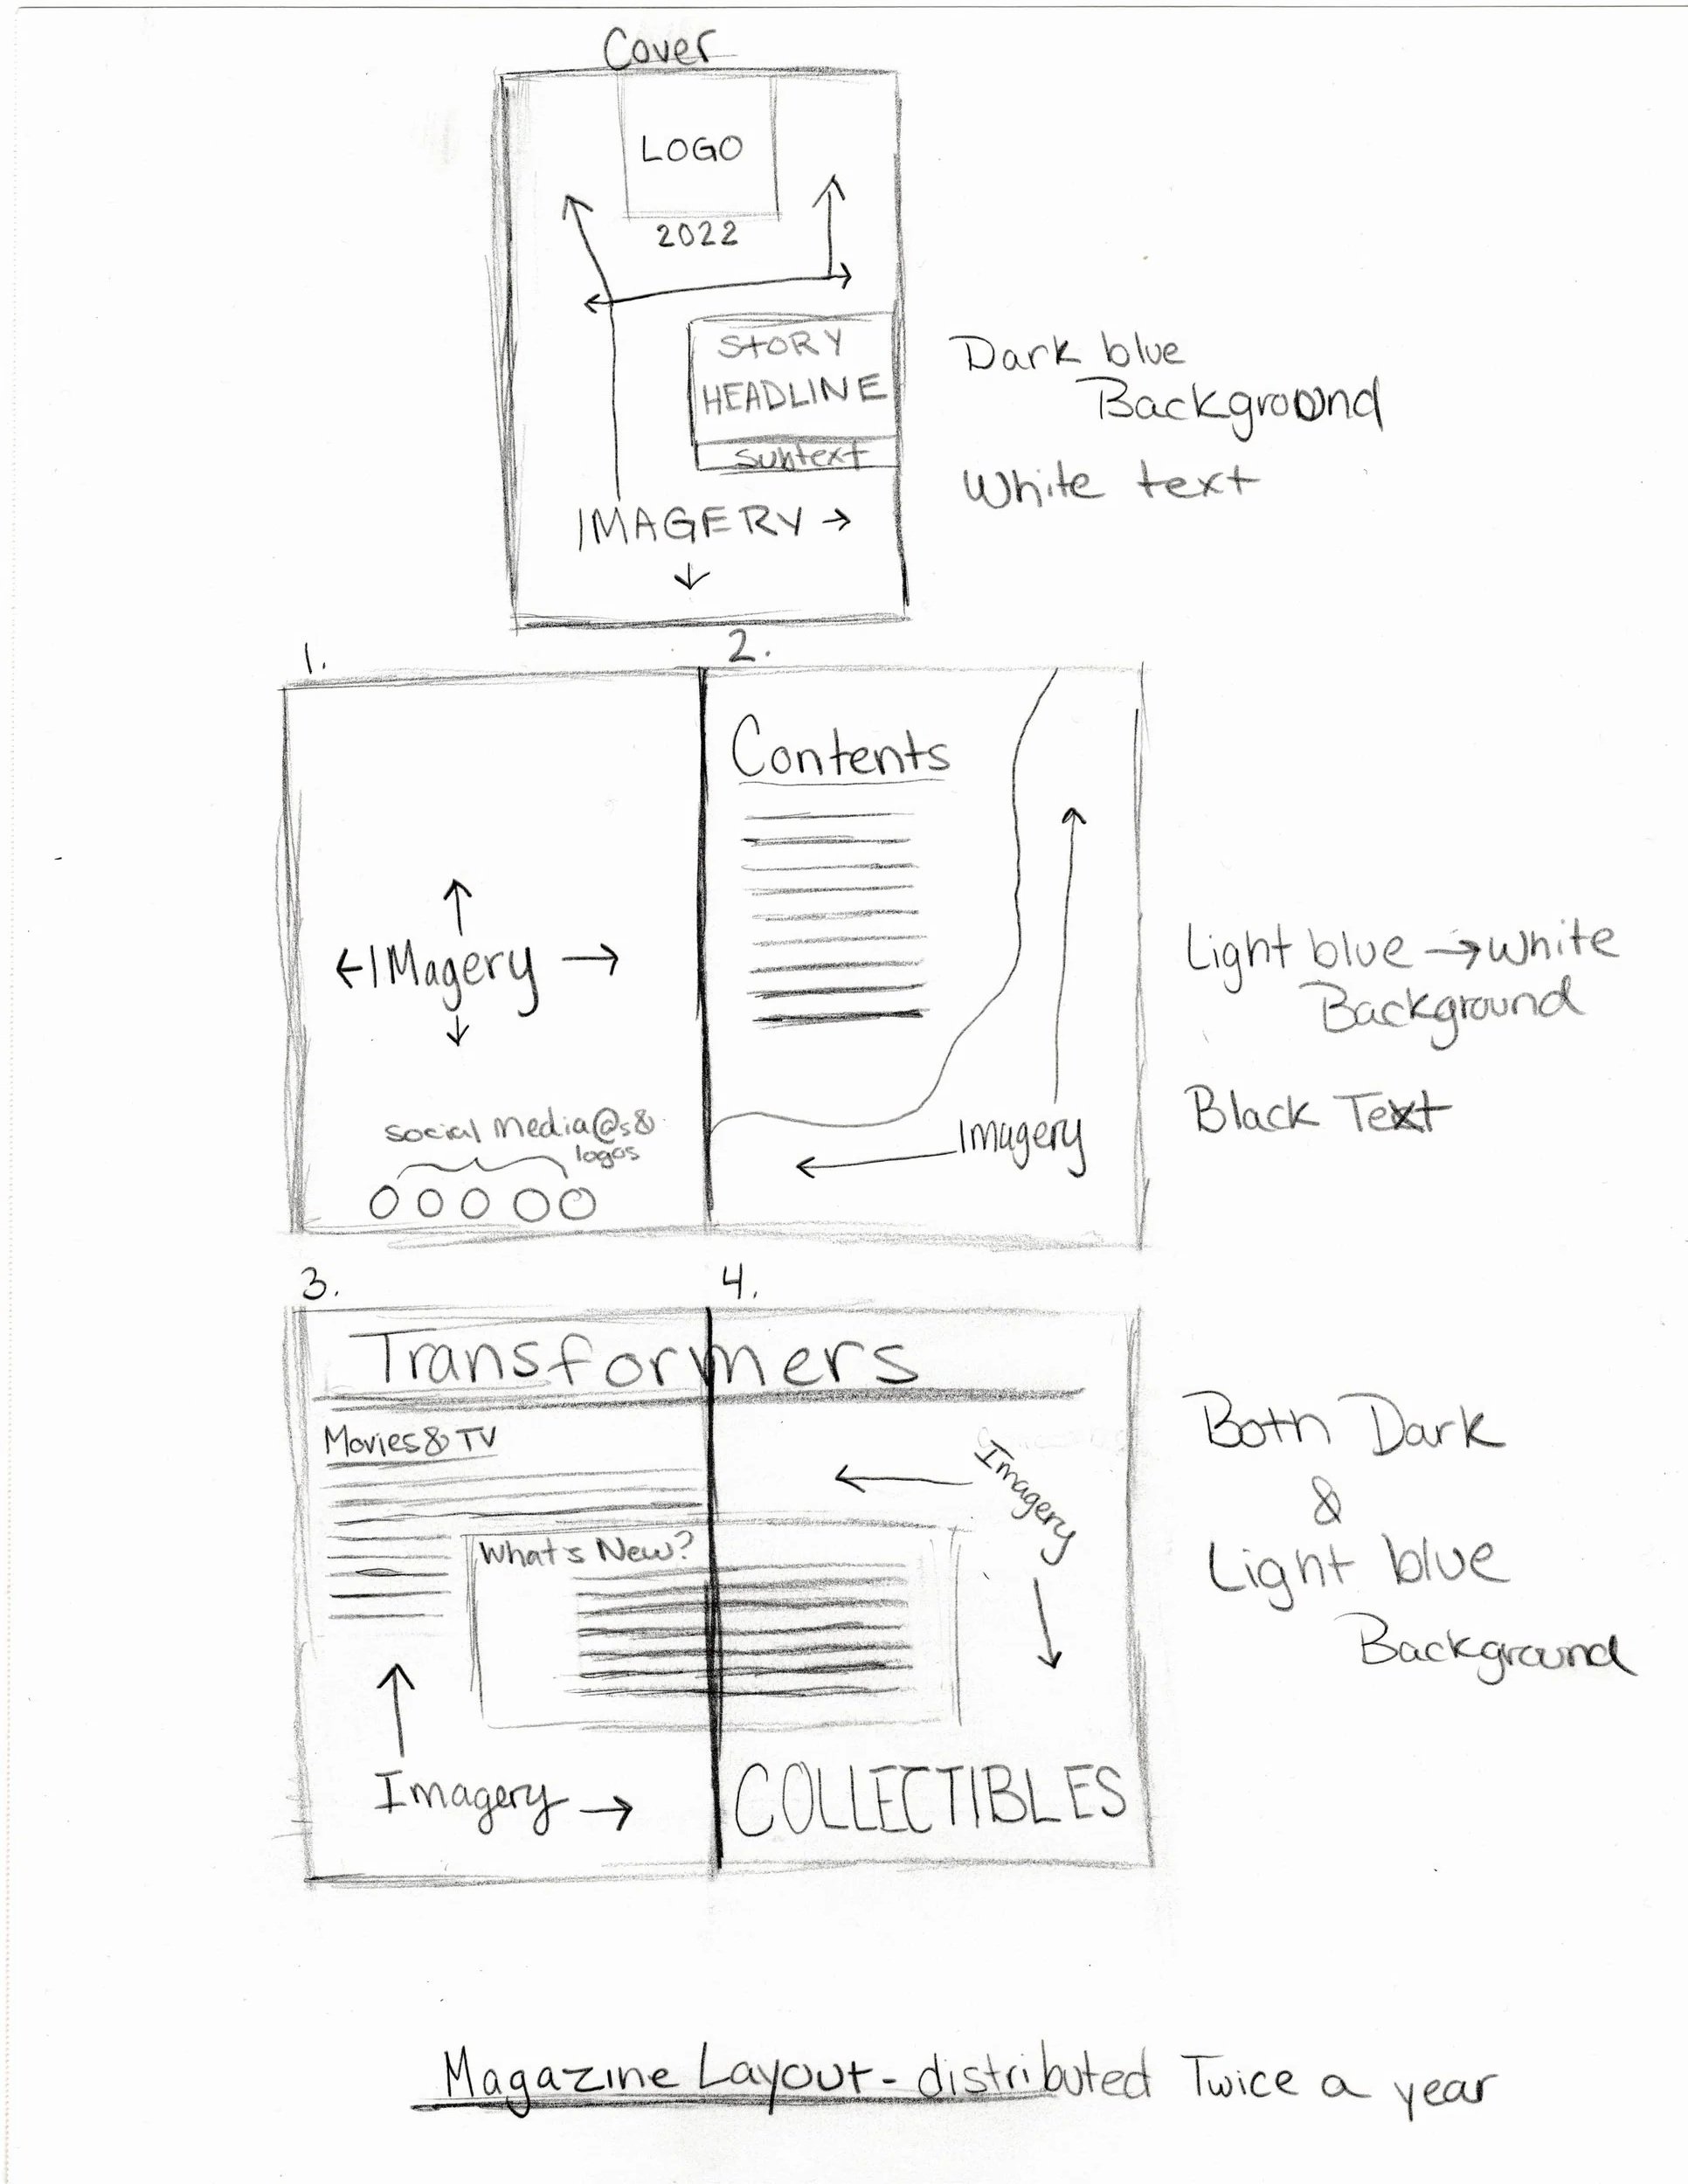 Cover
LOGO
2022
STORY
HEADLINE
subtext
IMAGERY
Dark blue
Background
White text
1.
2.
IMagery
social media @s &
logos
Contents
Imagery
Light blue → white
Background
Black Text
3.
4.
Transformers
Movies & TV
What's New?
Imagery
Imagery
COLLECTIBLES
Both Dark
&
Light blue
Background
Magazine Layout - distributed Twice a year